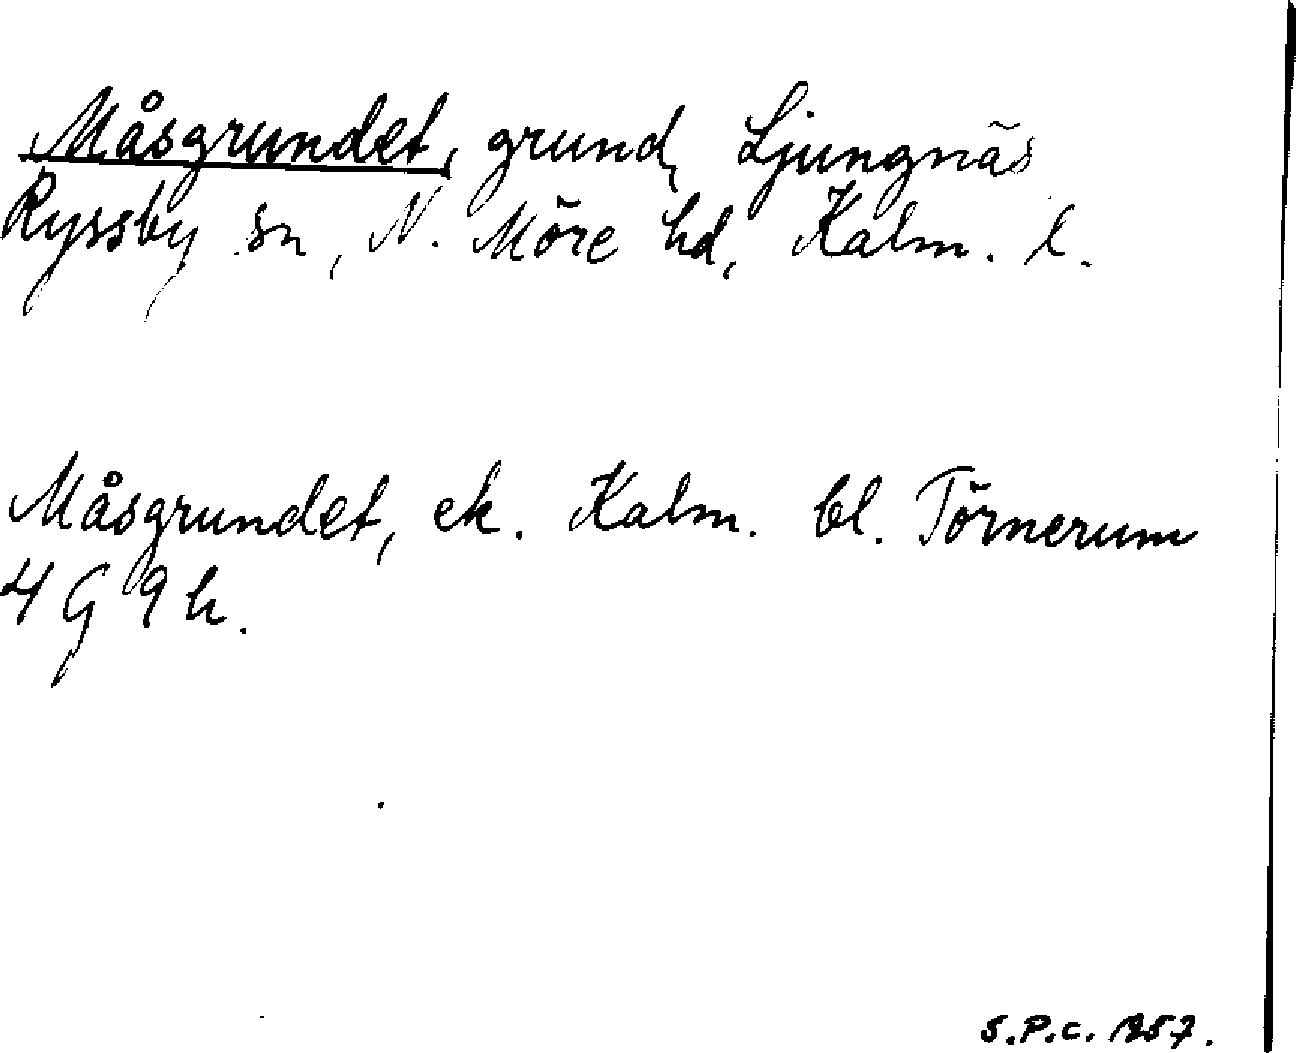 Måsgrundet, grund, Ljungnäs
Ryssby sn, N. Möre hd, Kalm. l.
Måsgrundet, ek. Kalm. bl. Törnerum
4 G 9 h.
S.P.C. 1957.